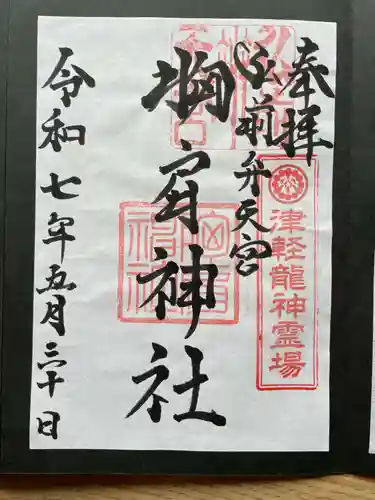 奉拝
弘前弁天宮
津軽龍神霊場
胸肩神社
令和七年五月三十日